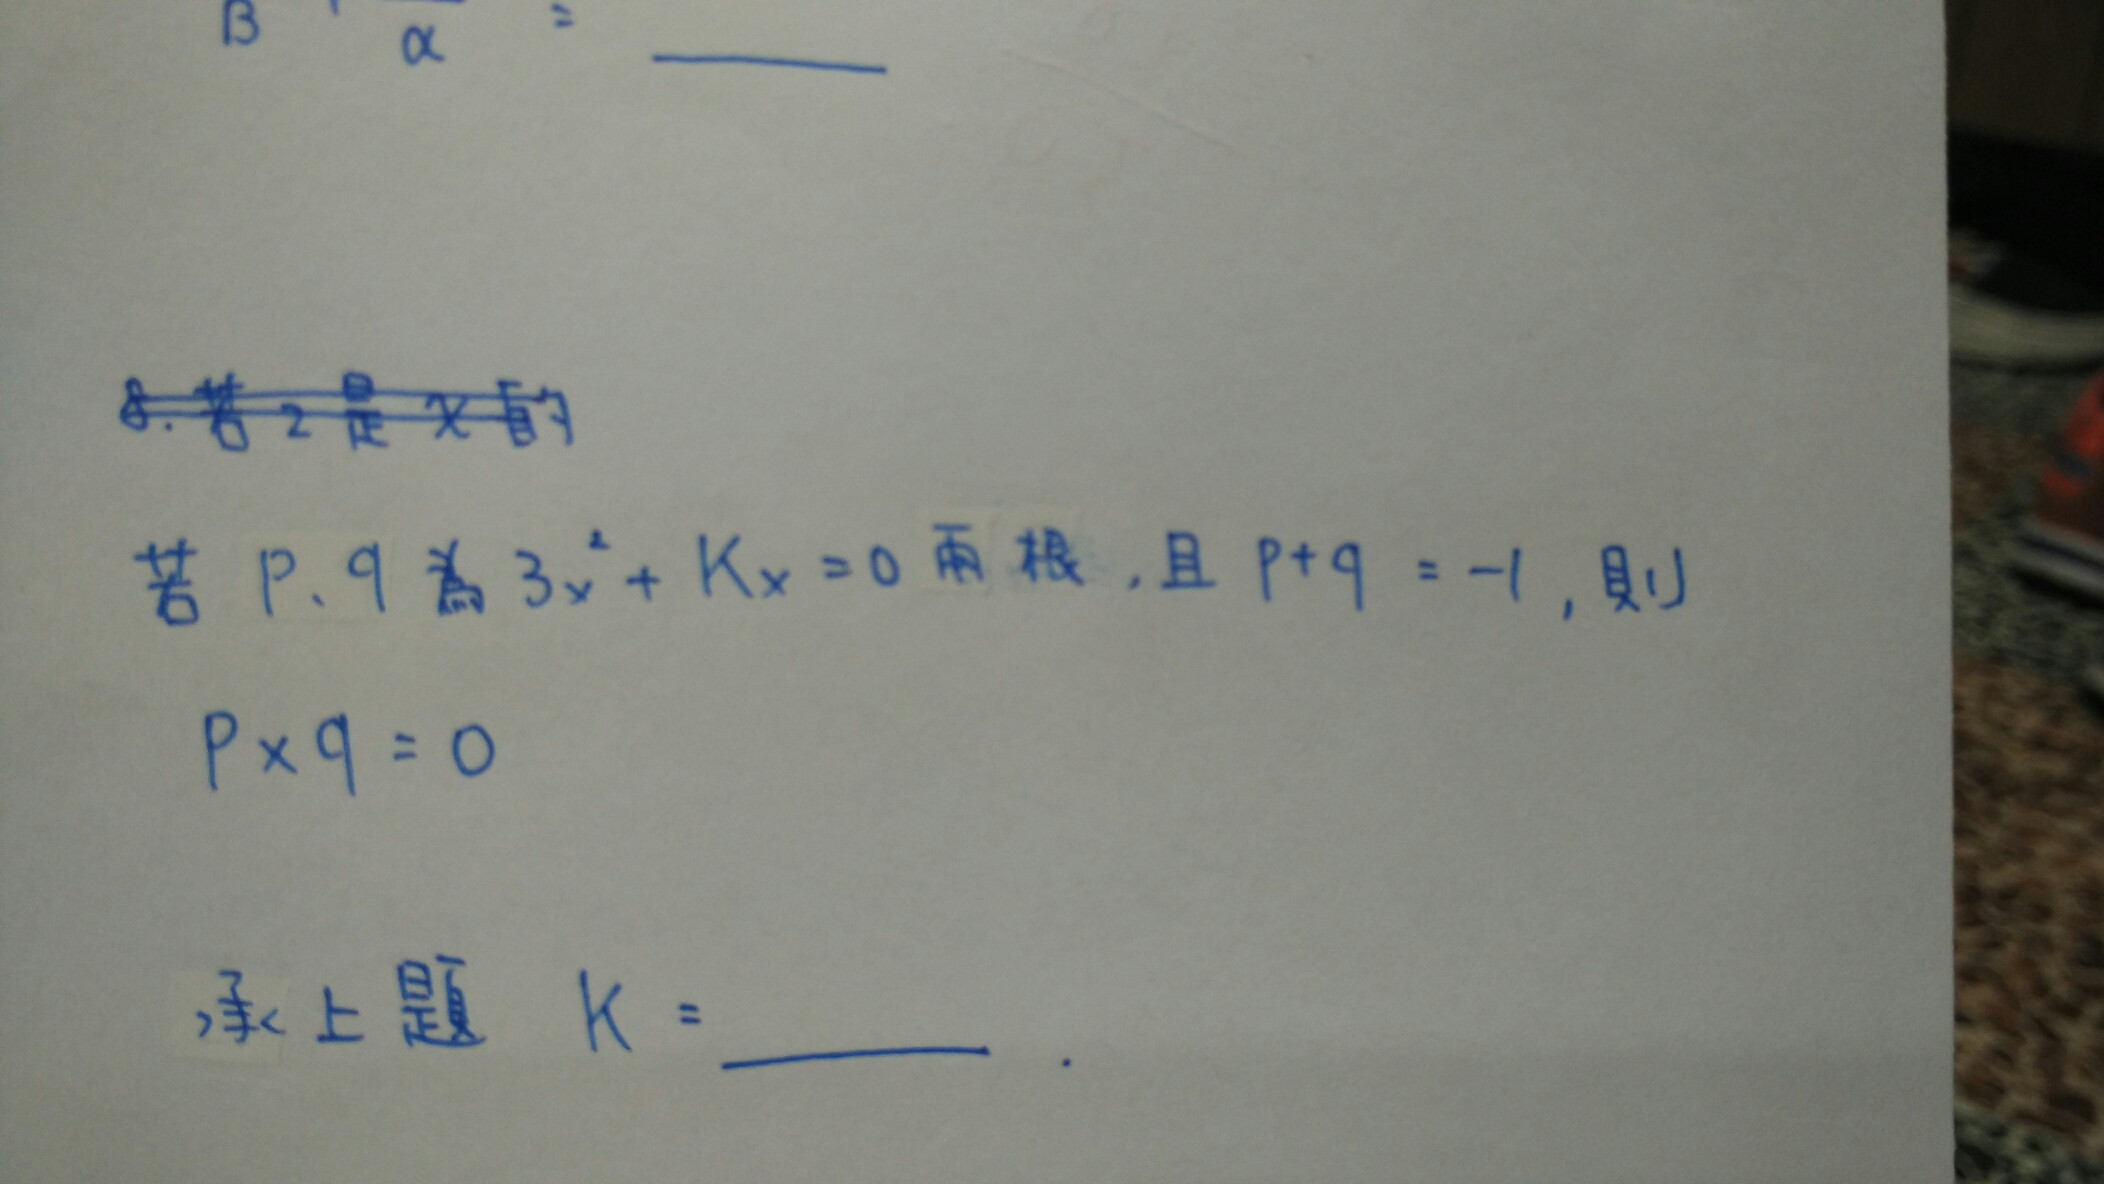 β α = ____
8. 若 2 是 x 的
若 P、q 為 3x² + Kx = 0 兩根，且 P+q = -1，則
P × q = 0
承上題 K = ____ .